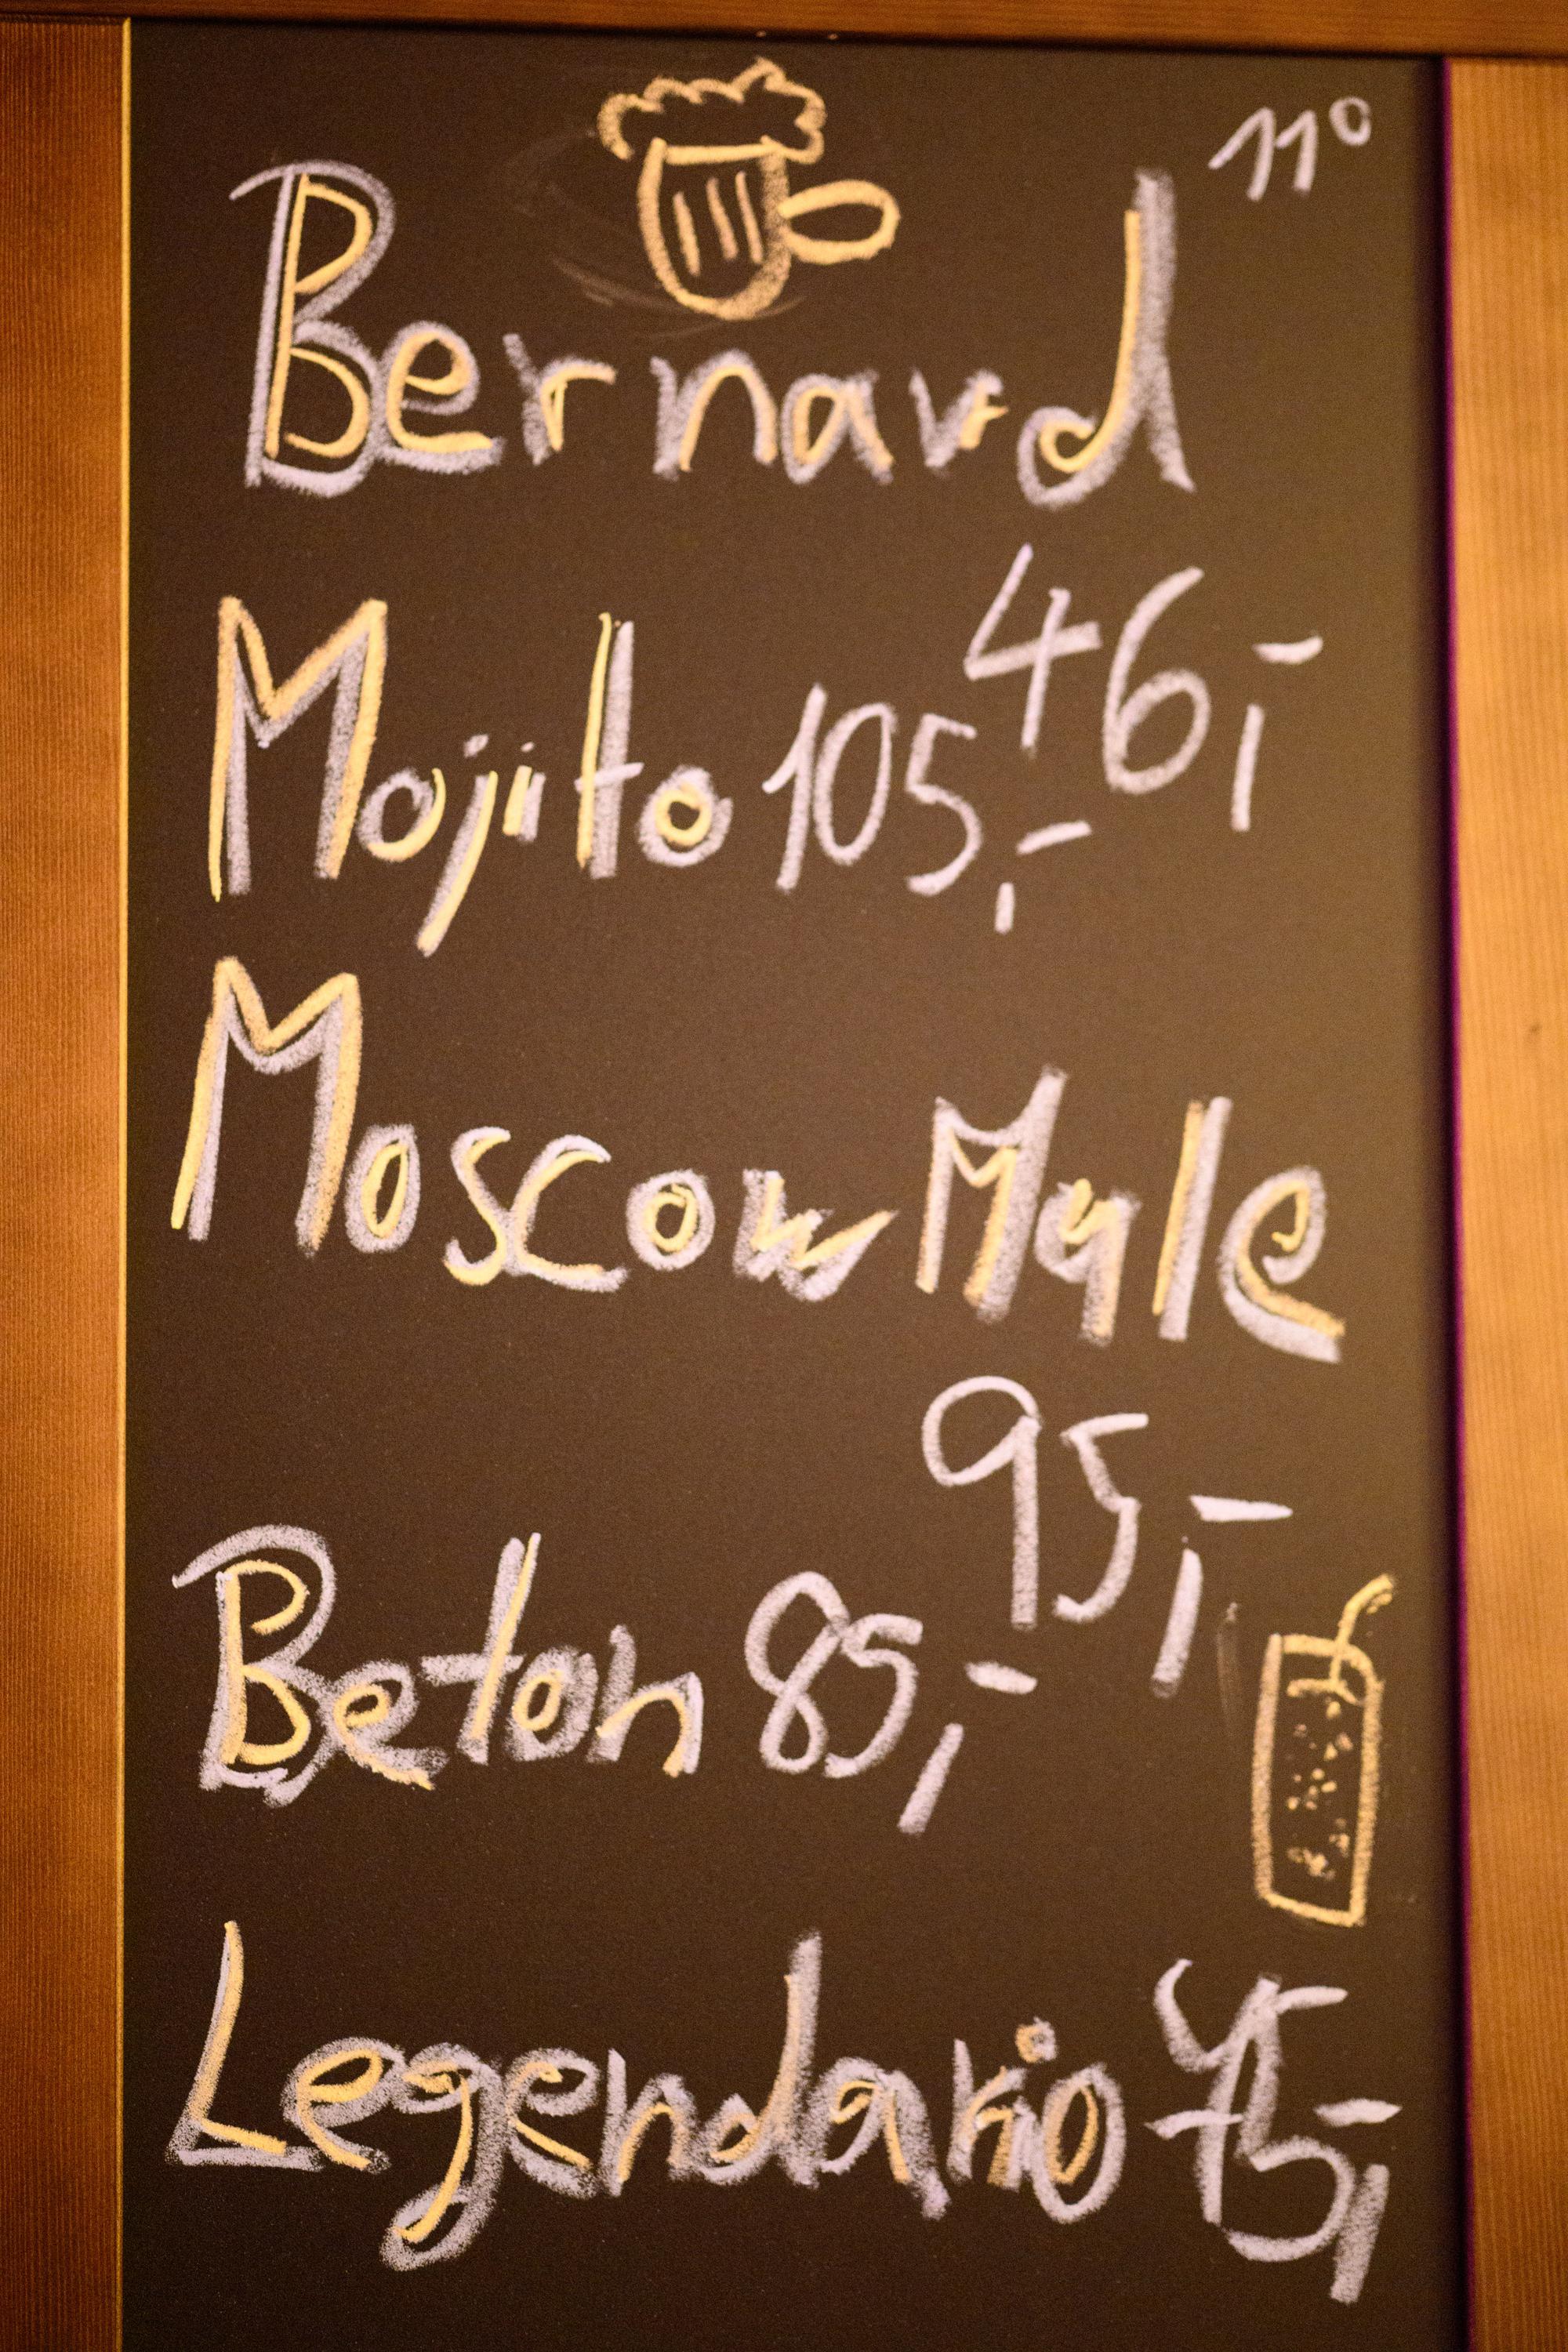 11°
Bernard
46,-
Mojito 105,-
Moscow Mule
95,-
Beton 85,-
Legendario 75,-